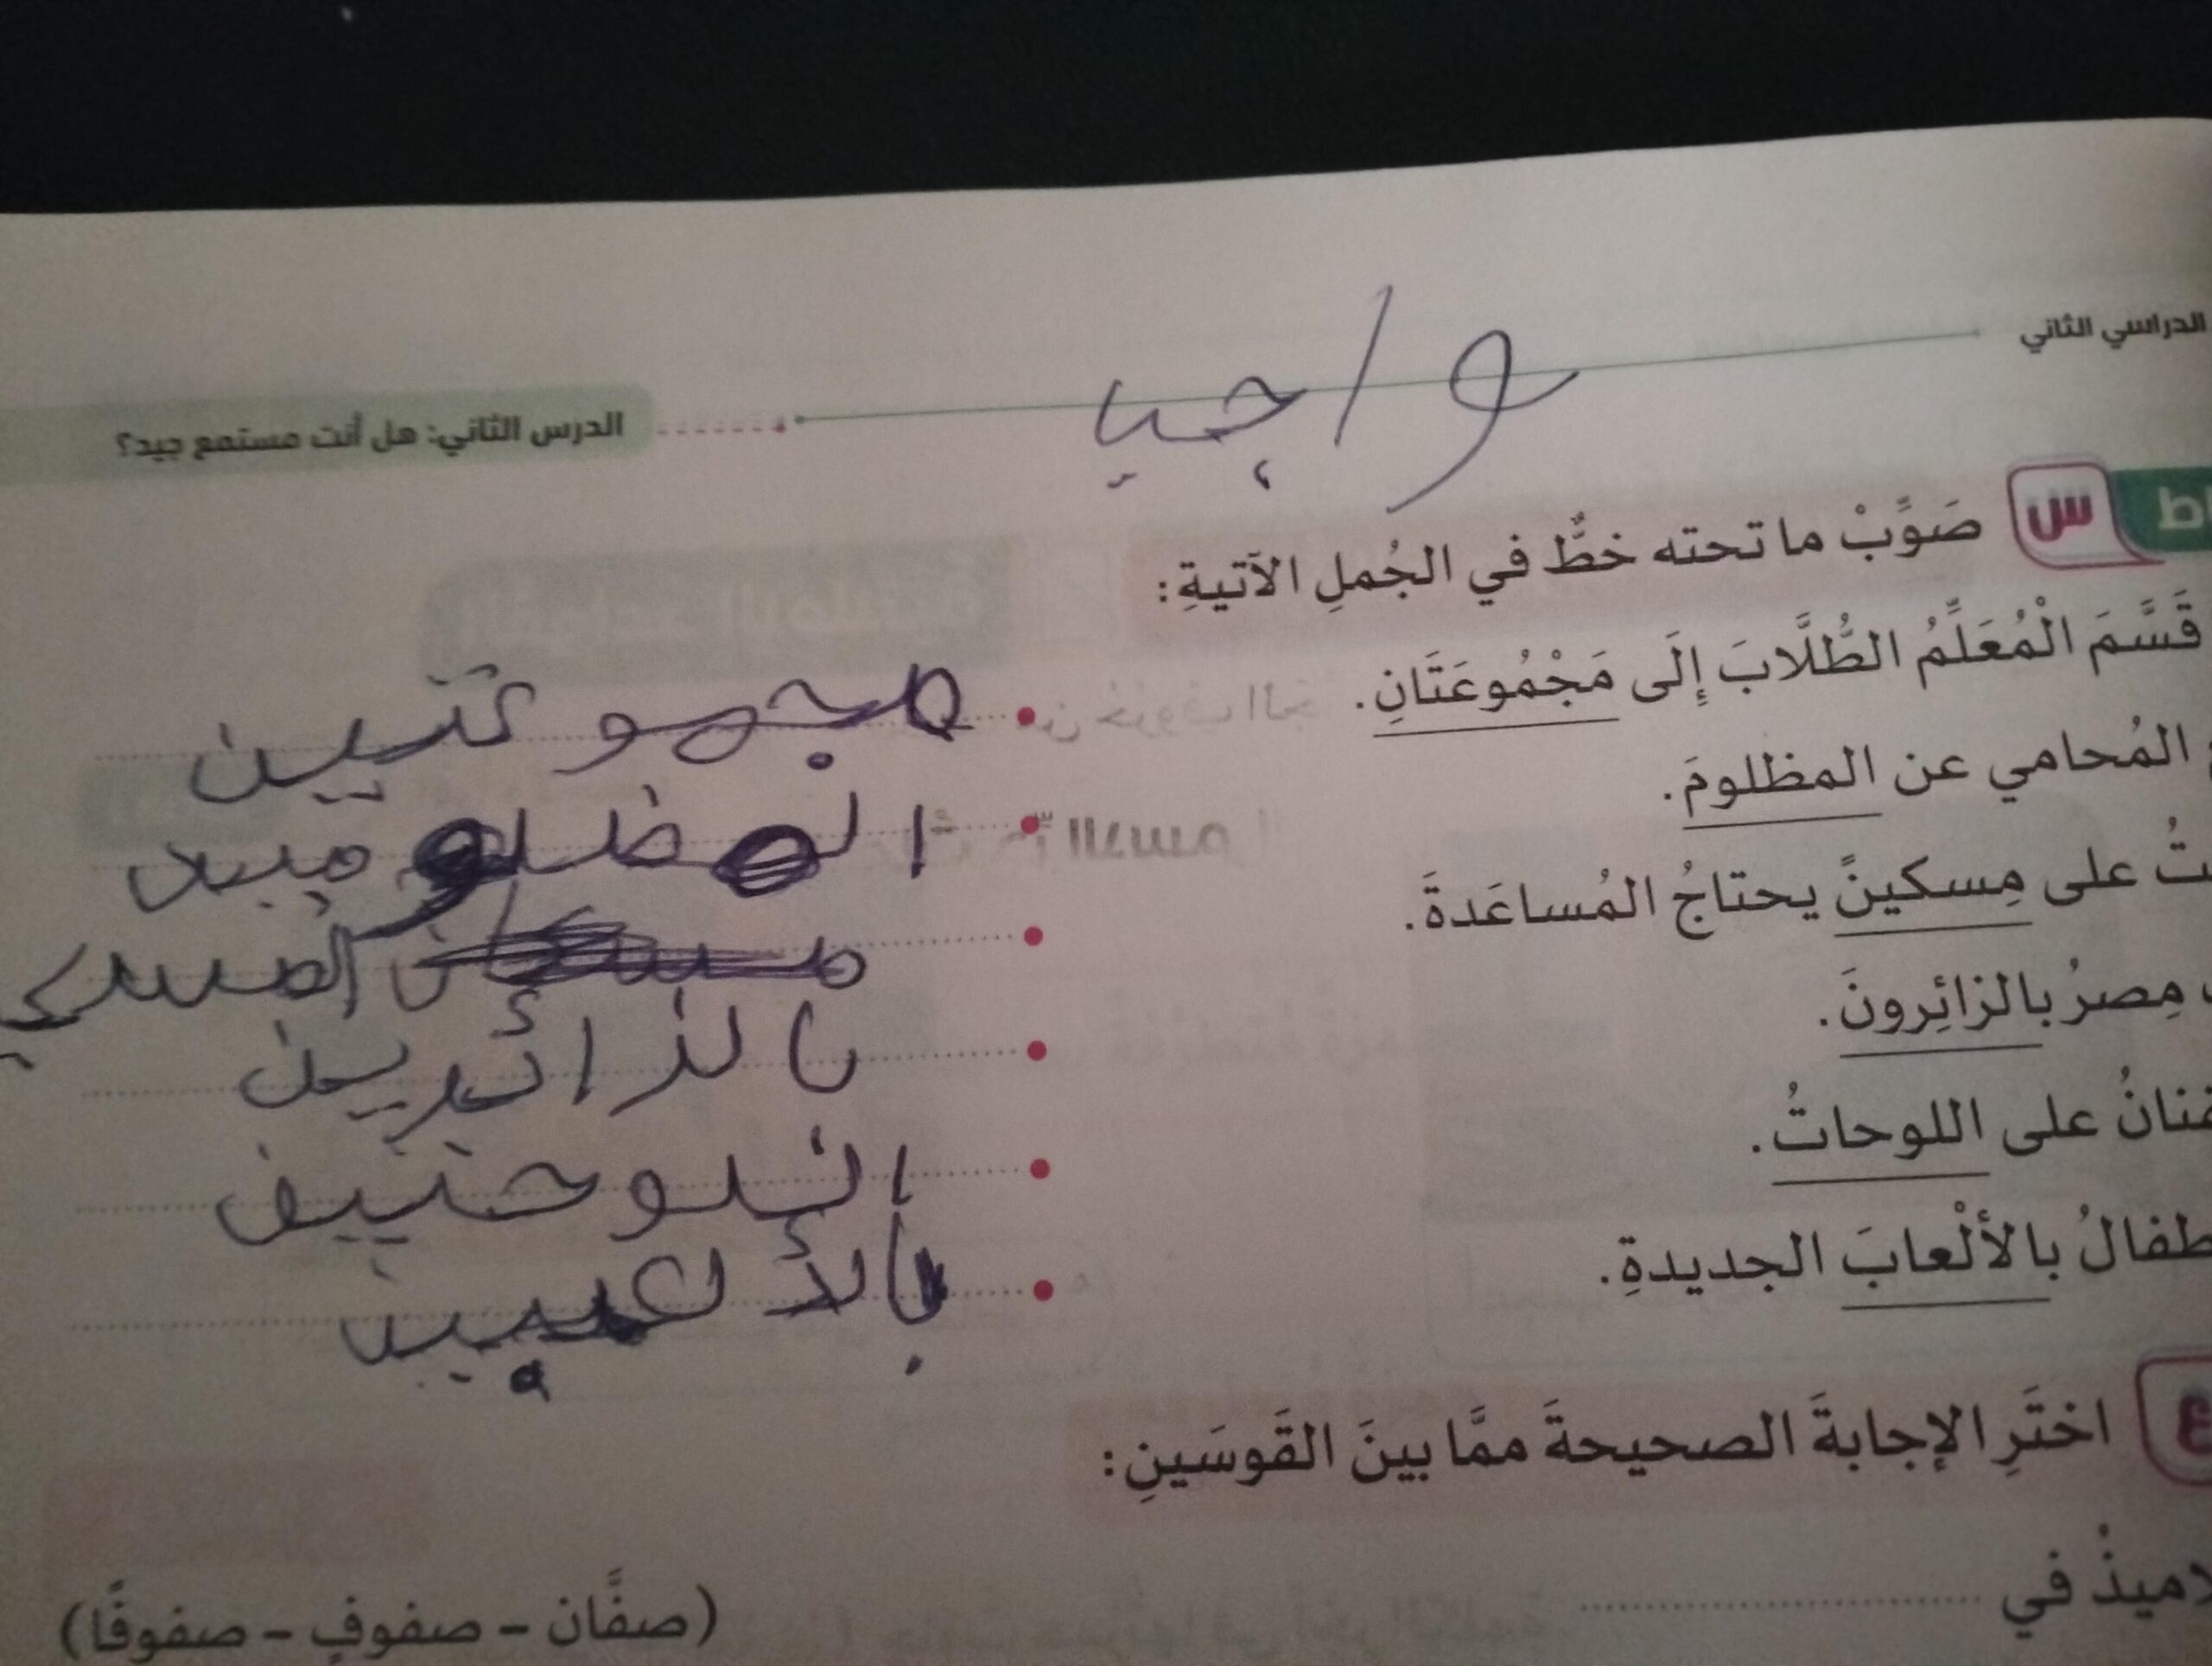 الدراسي الثاني
واجب
الدرس الثاني: هل أنت مستمع جيد؟
س صَوِّبْ ما تحته خطٌّ في الجُملِ الآتيةِ:
قَسَّمَ الْمُعَلِّمُ الطُّلَّابَ إِلَى مَجْمُوعَتَانِ. مجموعتين
المُحامي عن المظلومَ. المظلومين
تُ على مِسكينً يحتاجُ المُساعَدةَ.
مِصرُ بالزائِرونَ. بالزائرين
على اللوحاتُ. اللوحتين
طفالُ بالألْعابَ الجديدةِ.
ع اختَرِ الإجابةَ الصحيحةَ ممَّا بينَ القَوسَينِ:
لاميذُ في ........................ (صفَّان - صفوفٍ - صفوفًا)